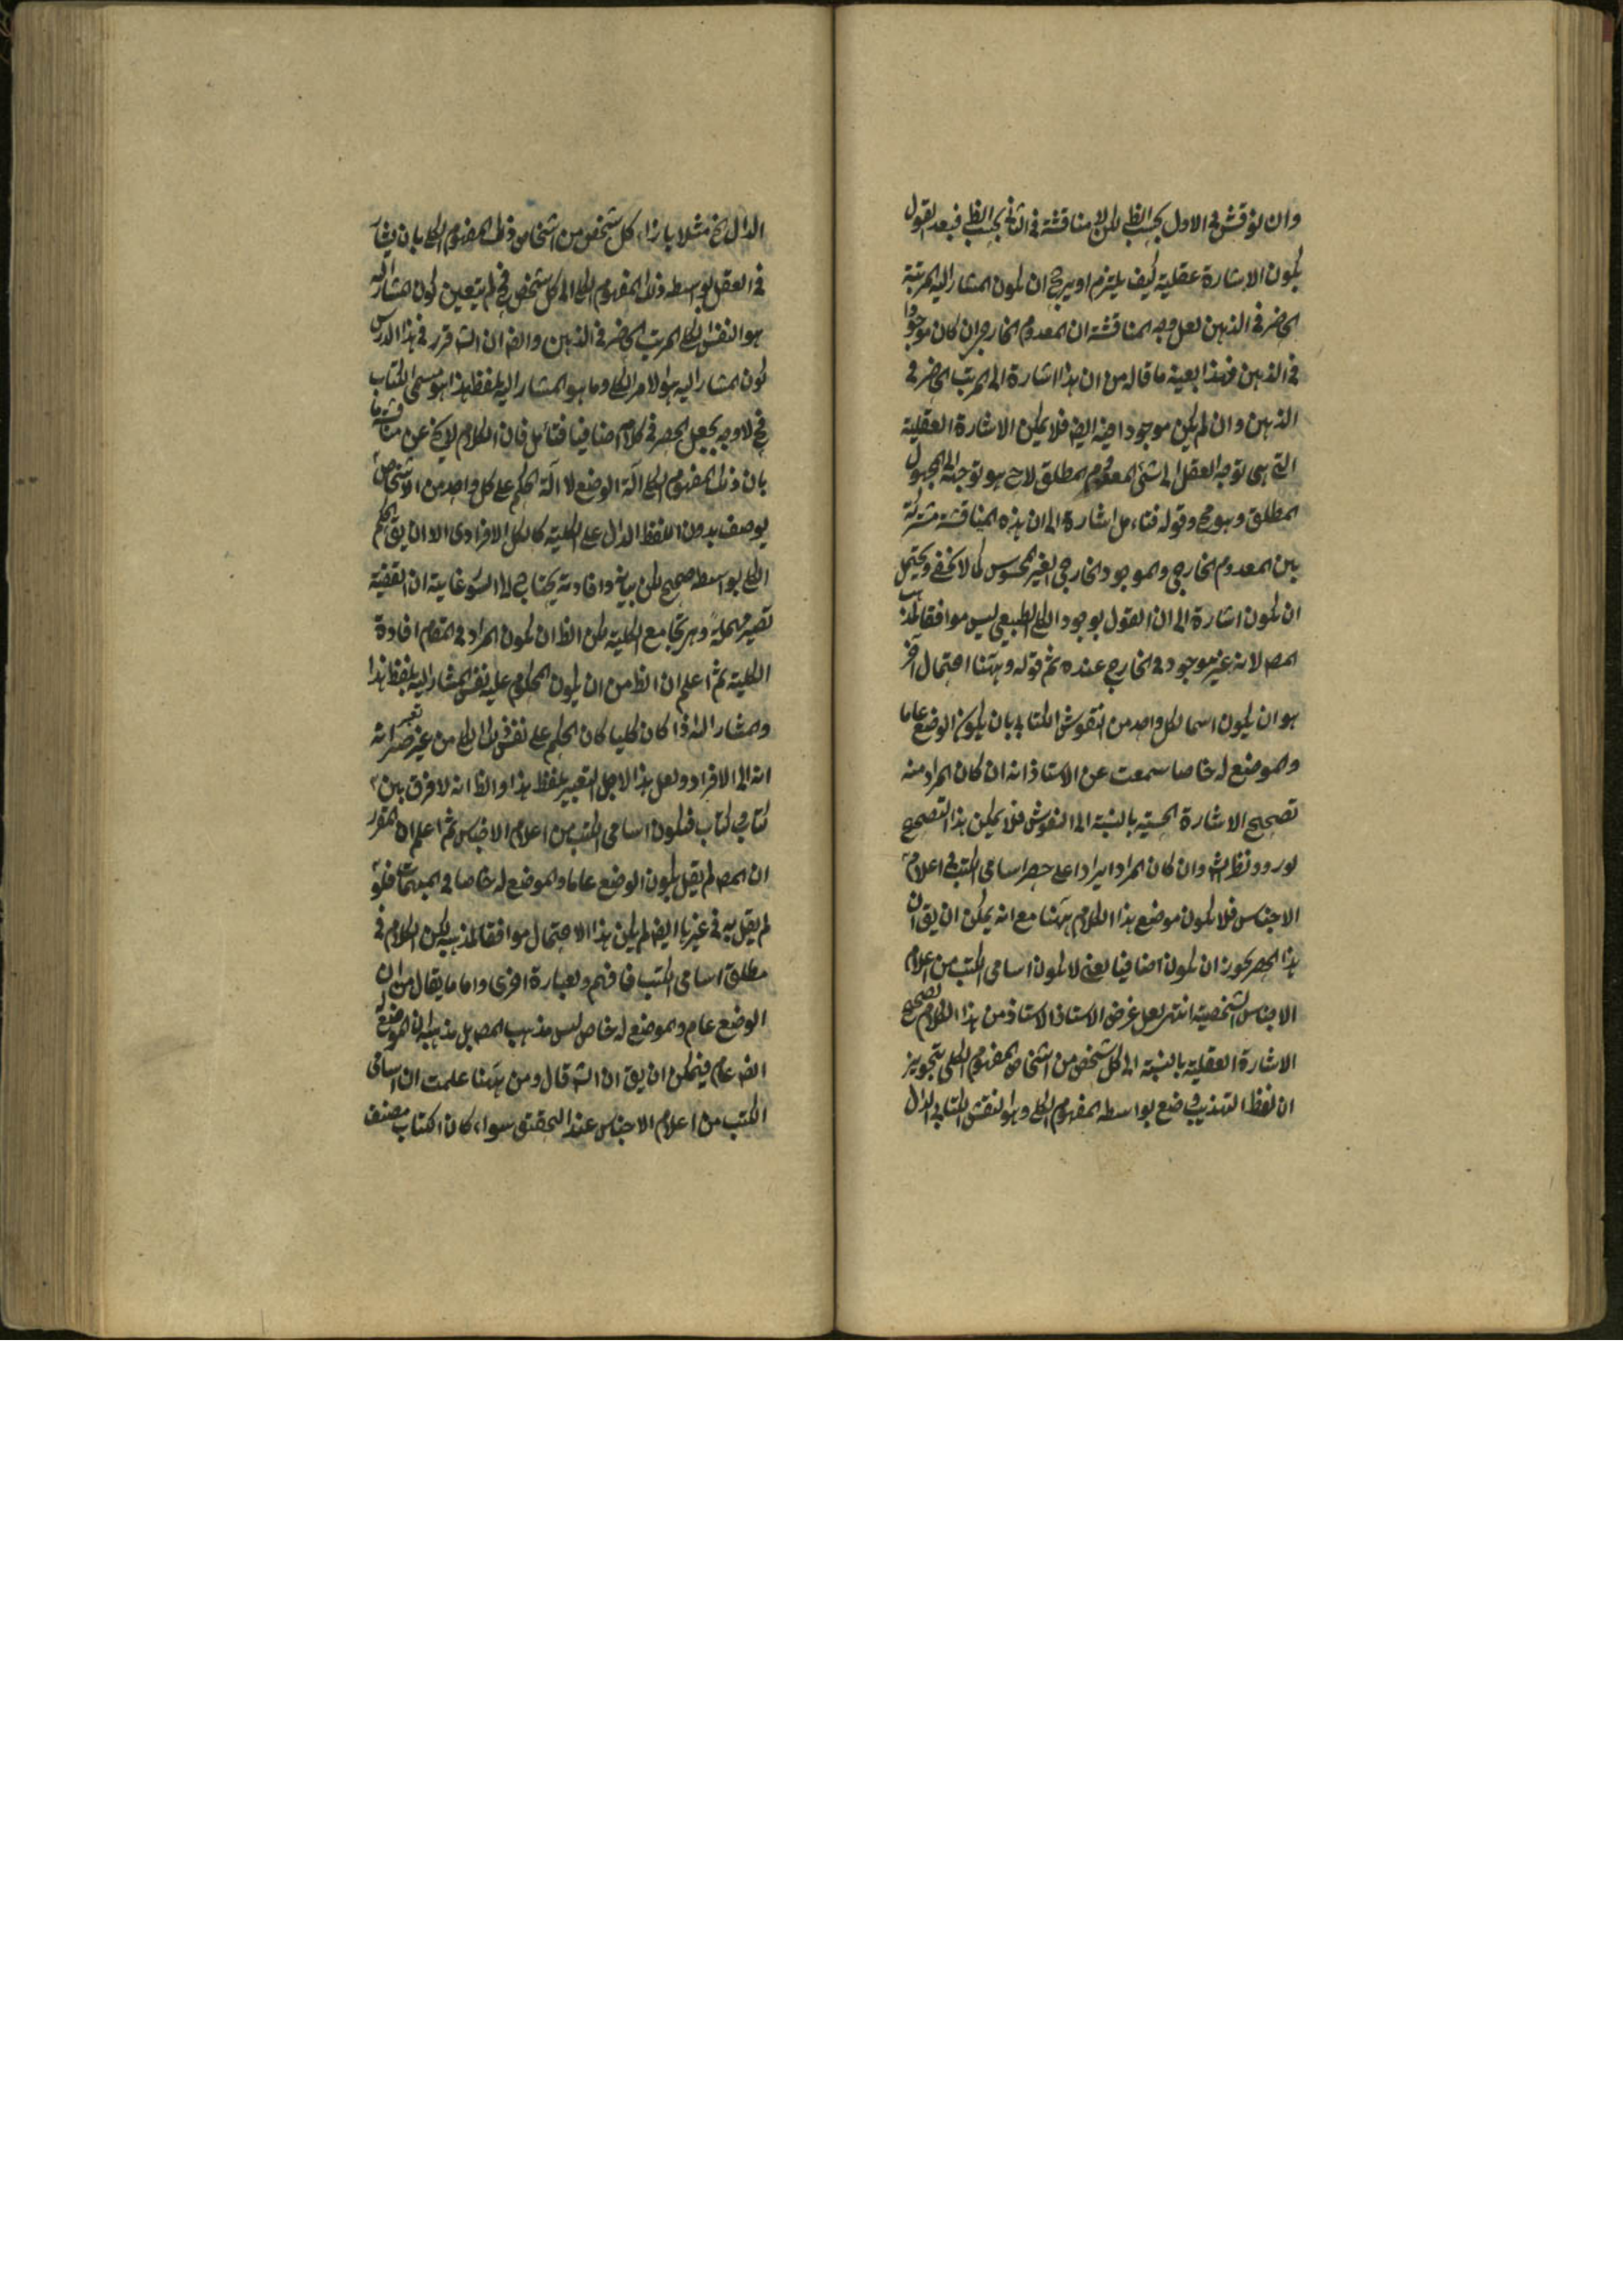 وان نوقش فى الاول بحسب الظ لكن لا مناقشة فى الثانى بحسب الظ فبعد القول
بكون الاشارة عقلية كيف يلتزم او يرجح ان يكون المشار اليه المرتبة
الحاضر فى الذهن لعل وجه المناقشة ان المعدوم الخارجى ان كان موجودا
فى الذهن فهذا بعينه ما قاله من ان هذا اشارة الى المرتب الحاضر فى
الذهن وان لم يكن موجودا فيه ايضا فلا يمكن الاشارة العقلية
التى هى توجه العقل الى شئ المعدوم المطلق لاح هو توجه الى المجهول
المطلق وهو مح وقوله فتأمل اشارة الى ان هذه المناقشة مشتركة
بين المعدوم الخارجى والموجود الخارجى الغير المحسوس كما لا يخفى ويحتمل
ان يكون اشارة الى ان القول بوجود الكلى الطبيعى ليس موافقا لمذهب
المص لانه غير موجود فى الخارج عنده ثم قوله وههنا احتمال آخر
هو ان يكون اسما لكل واحد من النقوش الكتابى بان يكون الوضع عاما
والموضوع له خاصا سمعت عن الاستاذ انه ان كان المراد منه
تصحيح الاشارة الحسية بالنسبة الى النقوش فلا يمكن هذا التصحيح
لورود نظ الش وان كان المراد ايرادا على حصر اسامى الكتب فى اعلام
الاجناس فلا يكون موضع هذا الكلام ههنا مع انه يمكن ان يق ان
هذا الحصر يجوز ان يكون اضافيا يعنى لا يكون اسامى الكتب من اعلام
الاجناس الشخصية انتهى لعل غرض الاستاذ الاستاذ من هذا الكلام تصحيح
الاشارة العقلية بالنسبة الى كل شخص من اشخاص المفهوم الكلى بتجويز
ان لفظ التهذيب وضع بواسطه المفهوم الكلى وهو النقش الكتابى الدال
الدال مثلا بازاء كل شخص من اشخاص ذلك المفهوم الكلى بان يشار
فى العقل بواسطه ذلك المفهوم الكلى الى كل شخص فح لم يتعين كون المشار اليه
هو النقش الكلى المرتب الحاضر فى الذهن وايضا ان الش قرر فى هذا الدرس
كون المشار اليه هو الامر الكلى وما هو المشار اليه بلفظ هذا هو مسمى الكتاب
فح لا وجه لجعل الحصر فى كلام اضافيا فتأمل فان الكلام لا يخ عن مناقشة ما
بان ذلك المفهوم الكلى آلة الوضع لا آلة الحكم على كل واحد من الاشخاص
يوصف بدون اللفظ الدال على الكلية كالكل الافرادى الا ان يق الحكم
الكلى بواسطه صحيح لكن بيانه وافادته يحتاج الى السور غايته ان القضية
تصير مهملة وهى تجامع الكلية لكن الظ ان يكون المراد فى المقام افادة
الكلية ثم اعلم ان الظ من ان يكون المحكوم عليه نفس المشار اليه بلفظ هذا
والمشار اليه اذا كان كليا كان الحكم على نفس ذلك الكلى من غير
الى الافراد ولعل هذا لاجل التعبير بلفظ هذا والظ انه لا فرق بين
كتاب وكتاب فيكون اسامى الكتب من اعلام الاجناس ثم اعلم ان المقرر
ان المص لم يقل بكون الوضع عاما والموضوع له خاصا فى المبهمات فلو
لم يقل به فى غيرها ايضا لم يكن هذا الاحتمال موافقا لمذهبه لكن الكلام فى
مطلق اسامى الكتب فافهم وبعبارة اخرى واما ما يقال من ان
الوضع عام والموضوع له خاص ليس مذهب المص بل مذهبه ان الموضوع له
ايضا عام فيمكن ان يق ان الش قال ومن ههنا علمت ان اسامى
الكتب من اعلام الاجناس عند التحقيق سواء كان الكتاب مصنف